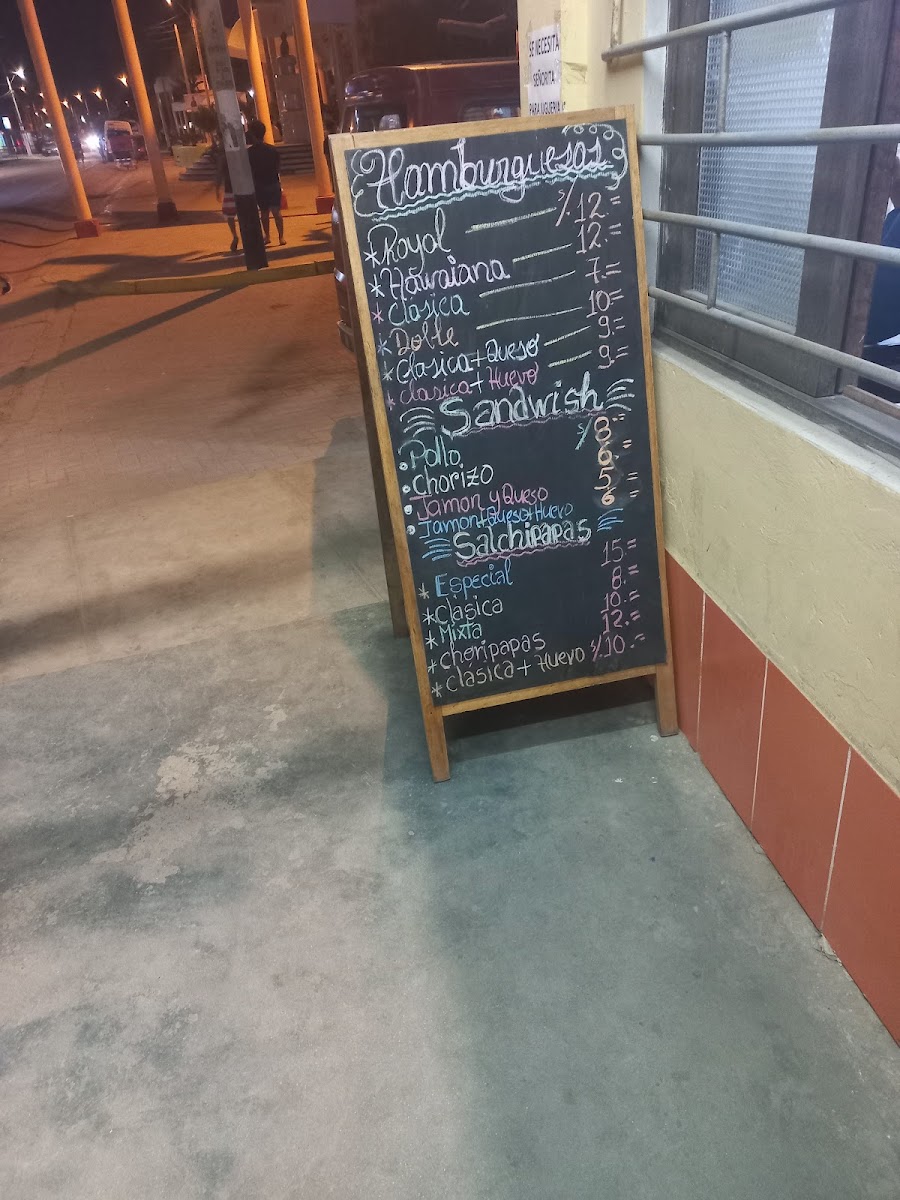 SE NECESITA
SEÑORITA
PARA JUGUERIA
Hamburguesas
*Royal S/. 12.=
*Hawaiana 12.=
*Clasica 7.=
*Doble 10=
*Clasica+Queso 9.=
*clasica+Huevo 9.=
Sandwish
•Pollo S/ 8
•Chorizo 6.=
•Jamon y Queso 5=
•Jamon+Queso+Huevo 6=
Salchipapas
*Especial 15.=
*Clasica 8.=
*Mixta 10.=
*choripapas 12.=
*clásica+Huevo S/.10.=